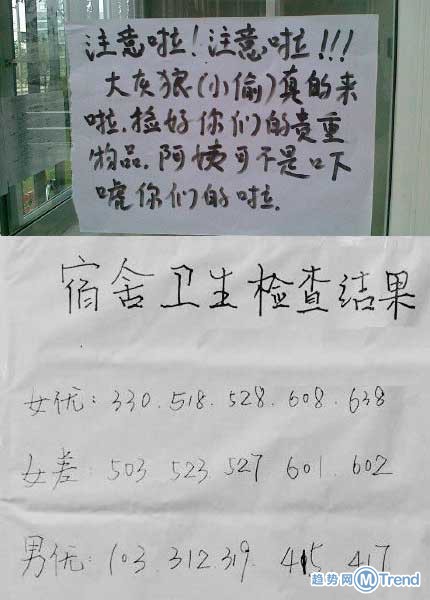 注意啦!注意啦!!!
大灰狼(小偷)真的来
啦.捡好你们的贵重
物品.阿姨可不是吓
唬你们的啦.
宿舍卫生检查结果
女优:330.518.528.608.638
女差:503 523.527 601.602
男优:103.312.319. 415 417
趋势网 M Trend